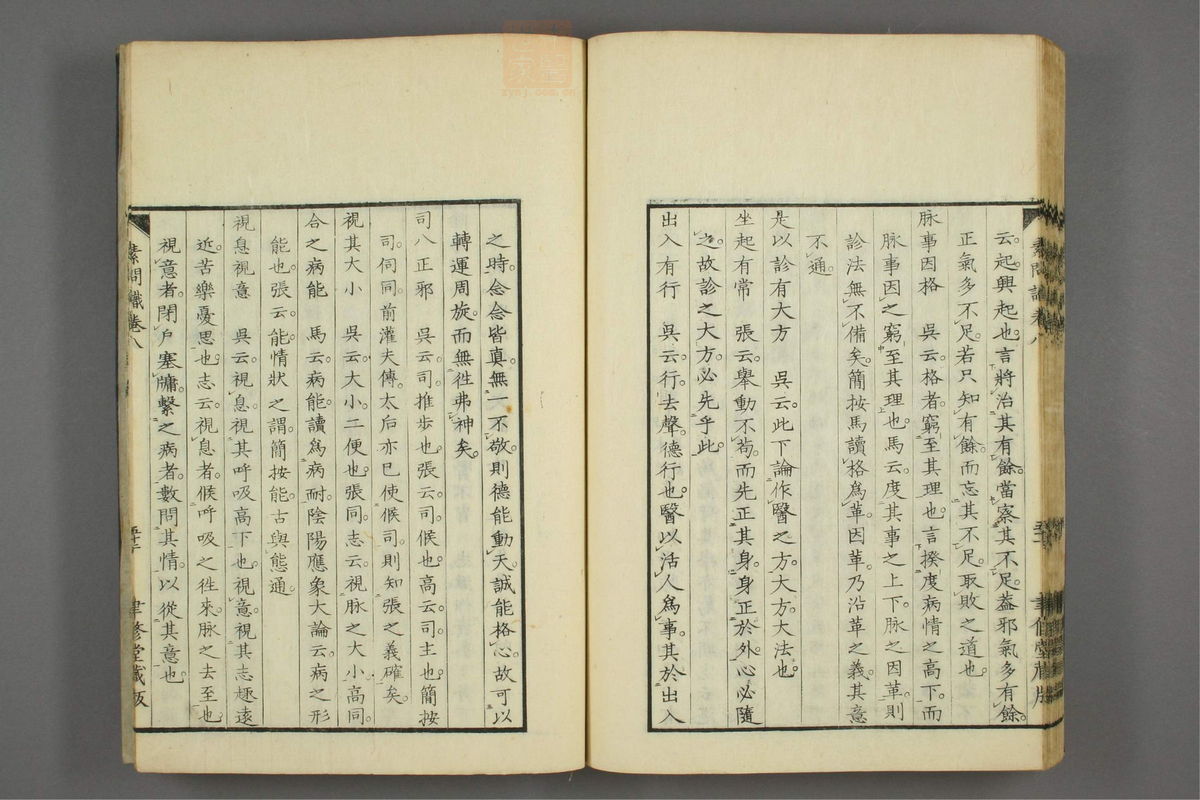 云。起。興起也。言將治其有餘。當察其不足。蓋邪氣多有餘。
正氣多不足。若只知有餘。而忘其不足。取敗之道也。
脉事因格　吳云。格者。窮至其理也。言揆度病情之高下。而
脉事因之。窮至其理也。馬云。度其事之上下。脉之因革。則
診法無不備矣。簡按馬讀格爲革。因革。乃沿革之義。其意
不通。
是以診有大方　吳云。此下論作醫之方。大方。大法也。
坐起有常　張云。舉動不苟。而先正其身。身正於外。心必隨
之。故診之大方。必先乎此。
出入有行　吳云。行。去聲。德行也。醫以活人爲事。其於出入
之時。念念皆真。無一不敬。則德能動天。誠能格心。故可以
轉運周旋。而無往弗神矣。
司八正邪　吳云。司。推步也。張云。司。候也。高云。司。主也。簡按
司。伺同。前灌夫傳。太后亦已使候司。則知張之義確矣。
視其大小　吳云。大小。二便也。張同。志云。視脉之大小。高同。
合之病能　馬云。病能。讀爲病耐。陰陽應象大論云。病之形
能也。張云。能。情狀之謂。簡按能。古與態通。
視息視意　吳云。視息。視其呼吸高下也。視意。視其志趣遠
近。苦樂憂思也。志云。視息者。候呼吸之往來。脉之去至也。
視意者。閉戶塞牖。繫之病者。數問其情。以從其意也。
素問識卷八
聿修堂藏版